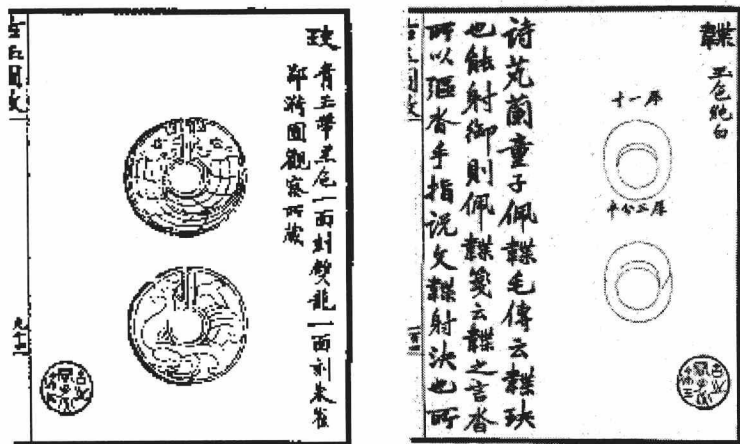 玦
青玉帶黑色一面刻雙龍一面刻朱雀
鄭犕圃觀察所藏
古玉圖攷
九十三
韘
玉色純白
十一厚
詩芄蘭童子佩韘毛傳云韘玦
也能射御則佩韘箋云韘之言沓
所以彄沓手指說文韘射決也所
古玉圖攷